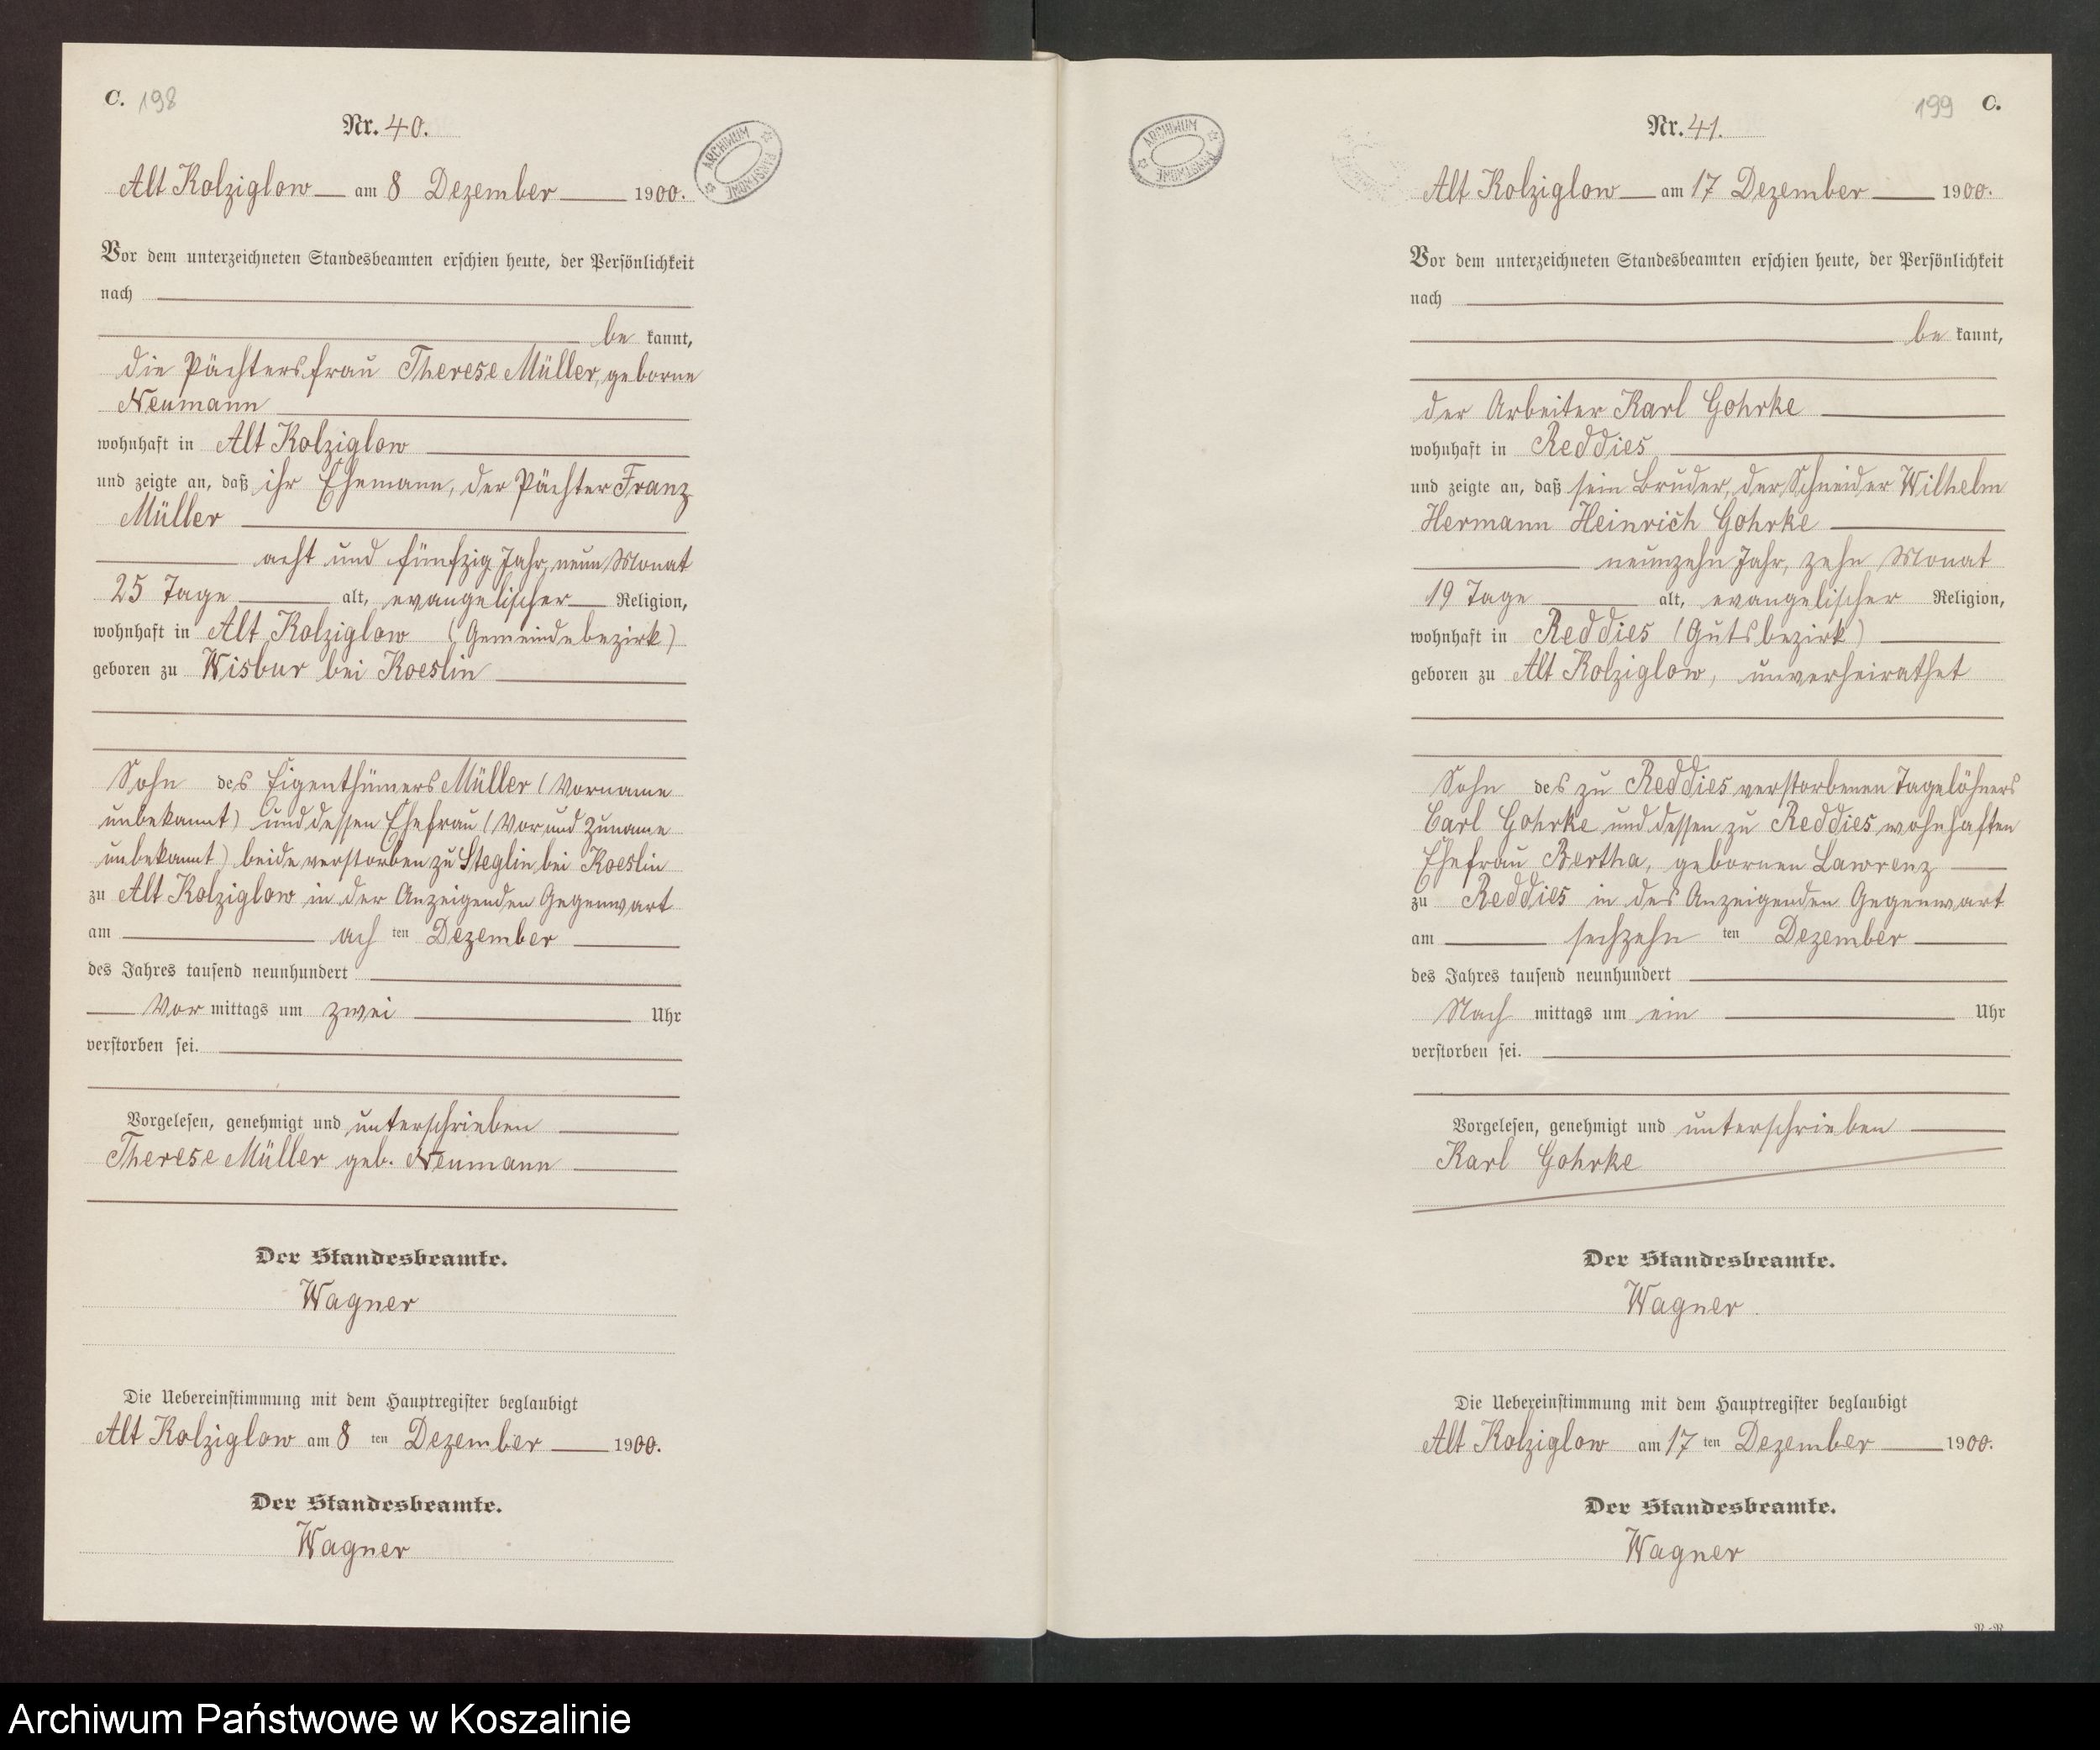 C. 198
Nr. 40.
ARCHIWUM PAŃSTWOWE
Alt Kolziglow am 8 Dezember 1900.
Vor dem unterzeichneten Standesbeamten erschien heute, der Persönlichkeit
nach
be kannt,
die Pächtersfrau Therese Müller, geborne
Neumann
wohnhaft in Alt Kolziglow
und zeigte an, daß ihr Ehemann, der Pächter Franz
Müller
acht und fünfzig Jahr, neun Monat
25 Tage alt, evangelischer Religion,
wohnhaft in Alt Kolziglow (Gemeindebezirk)
geboren zu Wisbur bei Koeslin
Sohn des Eigenthümers Müller (Vorname
unbekannt) und dessen Ehefrau (Vor und Zuname
unbekannt) beide verstorben zu Steglin bei Koeslin
zu Alt Kolziglow in der Anzeigenden Gegenwart
am ach ten Dezember
des Jahres tausend neunhundert
Vor mittags um zwei Uhr
verstorben sei.
Vorgelesen, genehmigt und unterschrieben
Therese Müller geb. Neumann
Der Standesbeamte.
Wagner
Die Uebereinstimmung mit dem Hauptregister beglaubigt
Alt Kolziglow am 8 ten Dezember 1900.
Der Standesbeamte.
Wagner
199 C.
Nr. 41.
ARCHIWUM PAŃSTWOWE
Alt Kolziglow am 17 Dezember 1900.
Vor dem unterzeichneten Standesbeamten erschien heute, der Persönlichkeit
nach
be kannt,
der Arbeiter Karl Gohrke
wohnhaft in Reddies
und zeigte an, daß sein Bruder, der Schneider Wilhelm
Hermann Heinrich Gohrke
neunzehn Jahr, zehn Monat
19 Tage alt, evangelischer Religion,
wohnhaft in Reddies (Gutsbezirk)
geboren zu Alt Kolziglow, unverheirathet
Sohn des zu Reddies verstorbenen Tagelöhners
Carl Gohrke und dessen zu Reddies wohnhaften
Ehefrau Bertha, gebornen Lawrenz
zu Reddies in des Anzeigenden Gegenwart
am sechzehn ten Dezember
des Jahres tausend neunhundert
Nach mittags um ein Uhr
verstorben sei.
Vorgelesen, genehmigt und unterschrieben
Karl Gohrke
Der Standesbeamte.
Wagner.
Die Uebereinstimmung mit dem Hauptregister beglaubigt
Alt Kolziglow am 17 ten Dezember 1900.
Der Standesbeamte.
Wagner
Archiwum Państwowe w Koszalinie